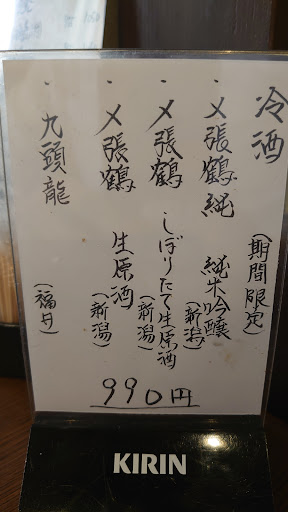 冷酒 (期間限定)
・〆張鶴 純 純米吟醸 (新潟)
・〆張鶴 しぼりたて生原酒 (新潟)
・〆張鶴 生原酒 (新潟)
・九頭龍 (福井)
990円
KIRIN